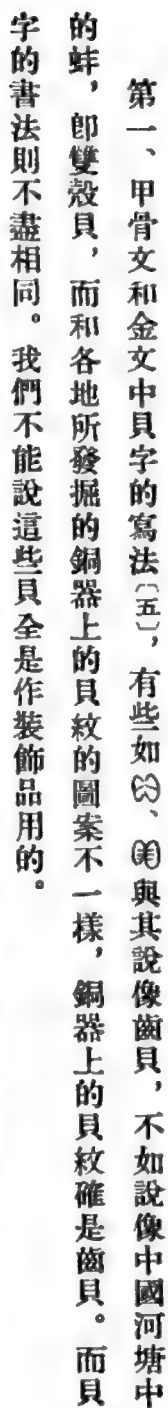 第一、甲骨文和金文中貝字的寫法〔五〕，有些如、與其說像齒貝，不如說像中國河塘中
的蚌，卽雙殼貝，而和各地所發掘的銅器上的貝紋的圖案不一樣，銅器上的貝紋確是齒貝。而貝
字的書法則不盡相同。我們不能說這些貝全是作裝飾品用的。